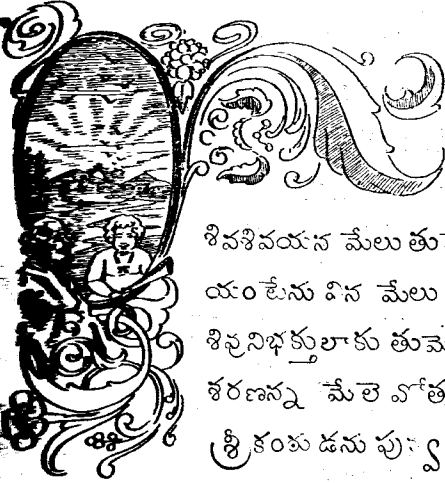 శివశివయన మేలు తు
యంటేను విన మేలు
శివునిభక్తులాకు తుమె
శరణన్న మేలె వోత
శ్రీకంఠుడను పు